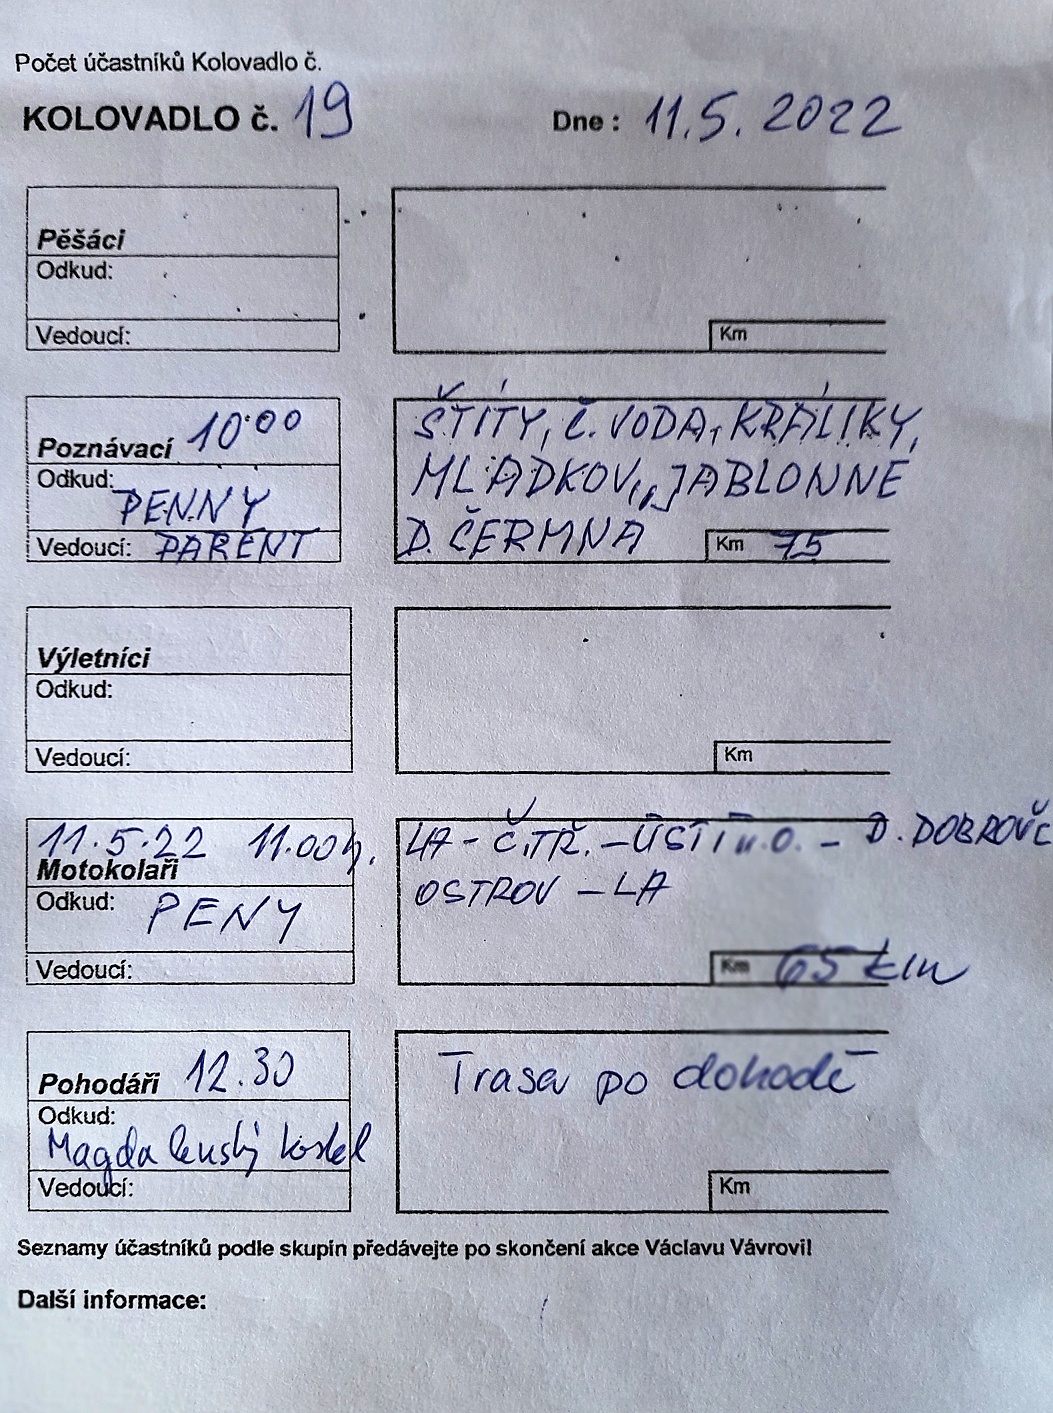 Počet účastníků Kolovadlo č.
KOLOVADLO č. 19 Dne : 11.5. 2022
Pěšáci
Odkud:
Vedoucí: Km
Poznávací 10:00 ŠTÍTY, Č. VODA, KRÁLÍKY,
Odkud: MLADKOV, JABLONNÉ
PENNY
Vedoucí: PARENT D. ČERMNA Km 75
Výletníci
Odkud:
Vedoucí: Km
11.5.22 11.00h. LA - Č.TŘ. - ÚSTÍ n.O. - D. DOBROUČ
Motokolaři OSTROV - LA
Odkud: PENY
Vedoucí: Km 65 km
Pohodáři 12.30 Trasa po dohodě
Odkud:
Magdalenský kostel
Vedoucí: Km
Seznamy účastníků podle skupin předávejte po skončení akce Václavu Vávrovi!
Další informace: